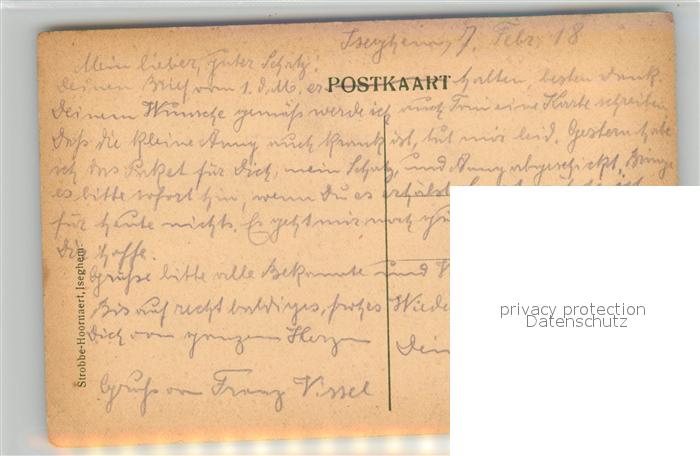 Iseghem, 7. Febr. 18
Mein lieber, guter Schatz!
POSTKAART
Deinen Brief vom 1. d. M. erhalten, besten Dank.
Deinem Wunsche gemäß werde ich auch eine Karte schreiben
Daß die kleine Anny auch krank ist, tut mir leid. Gestern habe
ich das Paket für Dich, mein Schatz, und Anny abgeschickt. Bringe
es bitte sofort hin, wenn Du es erhälst.
für heute nichts. Es geht mir noch
Dir hoffe.
Grüße bitte alle Bekannte und
Bis auf recht baldiges, frohes Wiede
Dich von ganzem Herzen
Dein
Gruß von Franz Vissel
Strobbe-Hoornaert, Iseghem.
privacy protection
Datenschutz